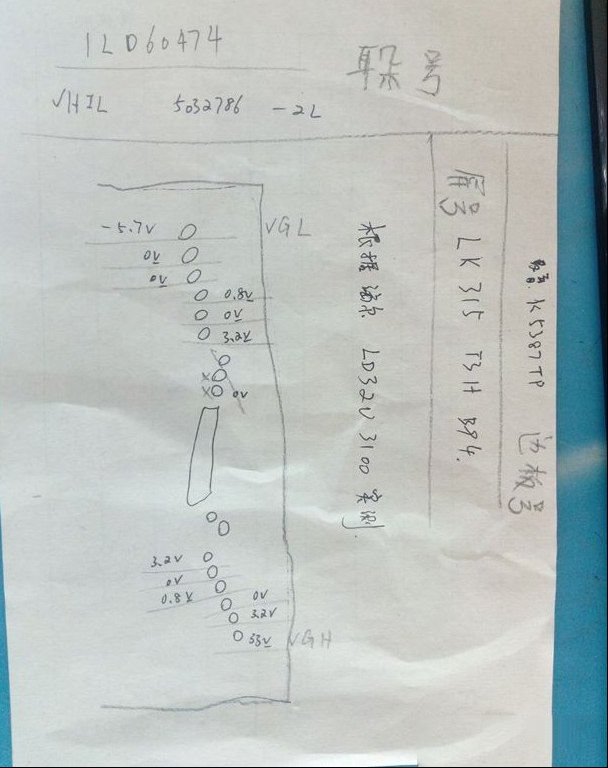 1LD60474
VHIL 5032786 -2L
号
屏号 LK315 T3H B94.
K5387TP
边板号
根据海尔 LD32U3100 实测.
-5.7V
VGL
0V
0V
0.8V
0V
3.2V
X
X
0V
3.2V
0V
0.8V
0V
3.2V
33V
VGH